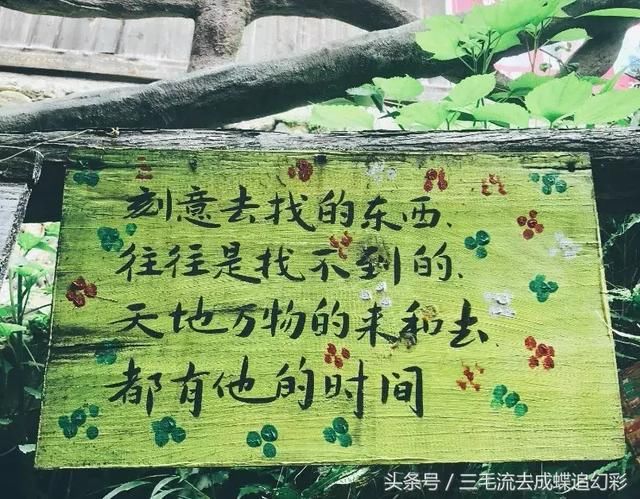 刻意去找的东西、
往往是找不到的、
天地万物的来和去、
都有他的时间
头条号／三毛流去成蝶追幻彩